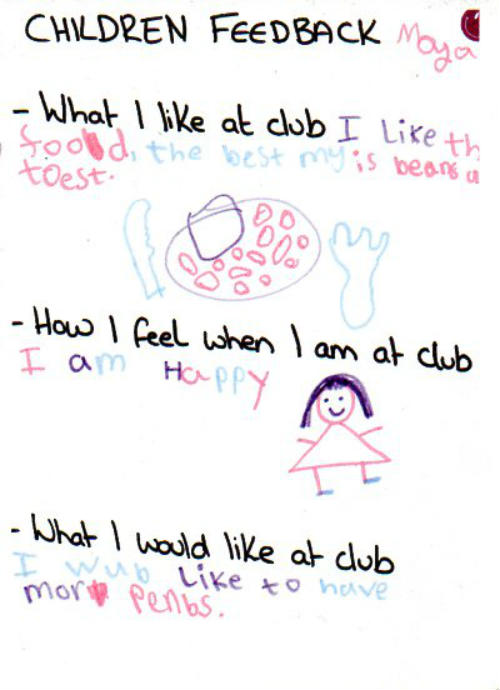 CHILDREN FEEDBACK Moya
- What I like at club I Like th
food, the best my is beans u
toest.
- How I feel when I am at club
I am Happy
- What I would like at club
I wub Like to have
mor penbs.